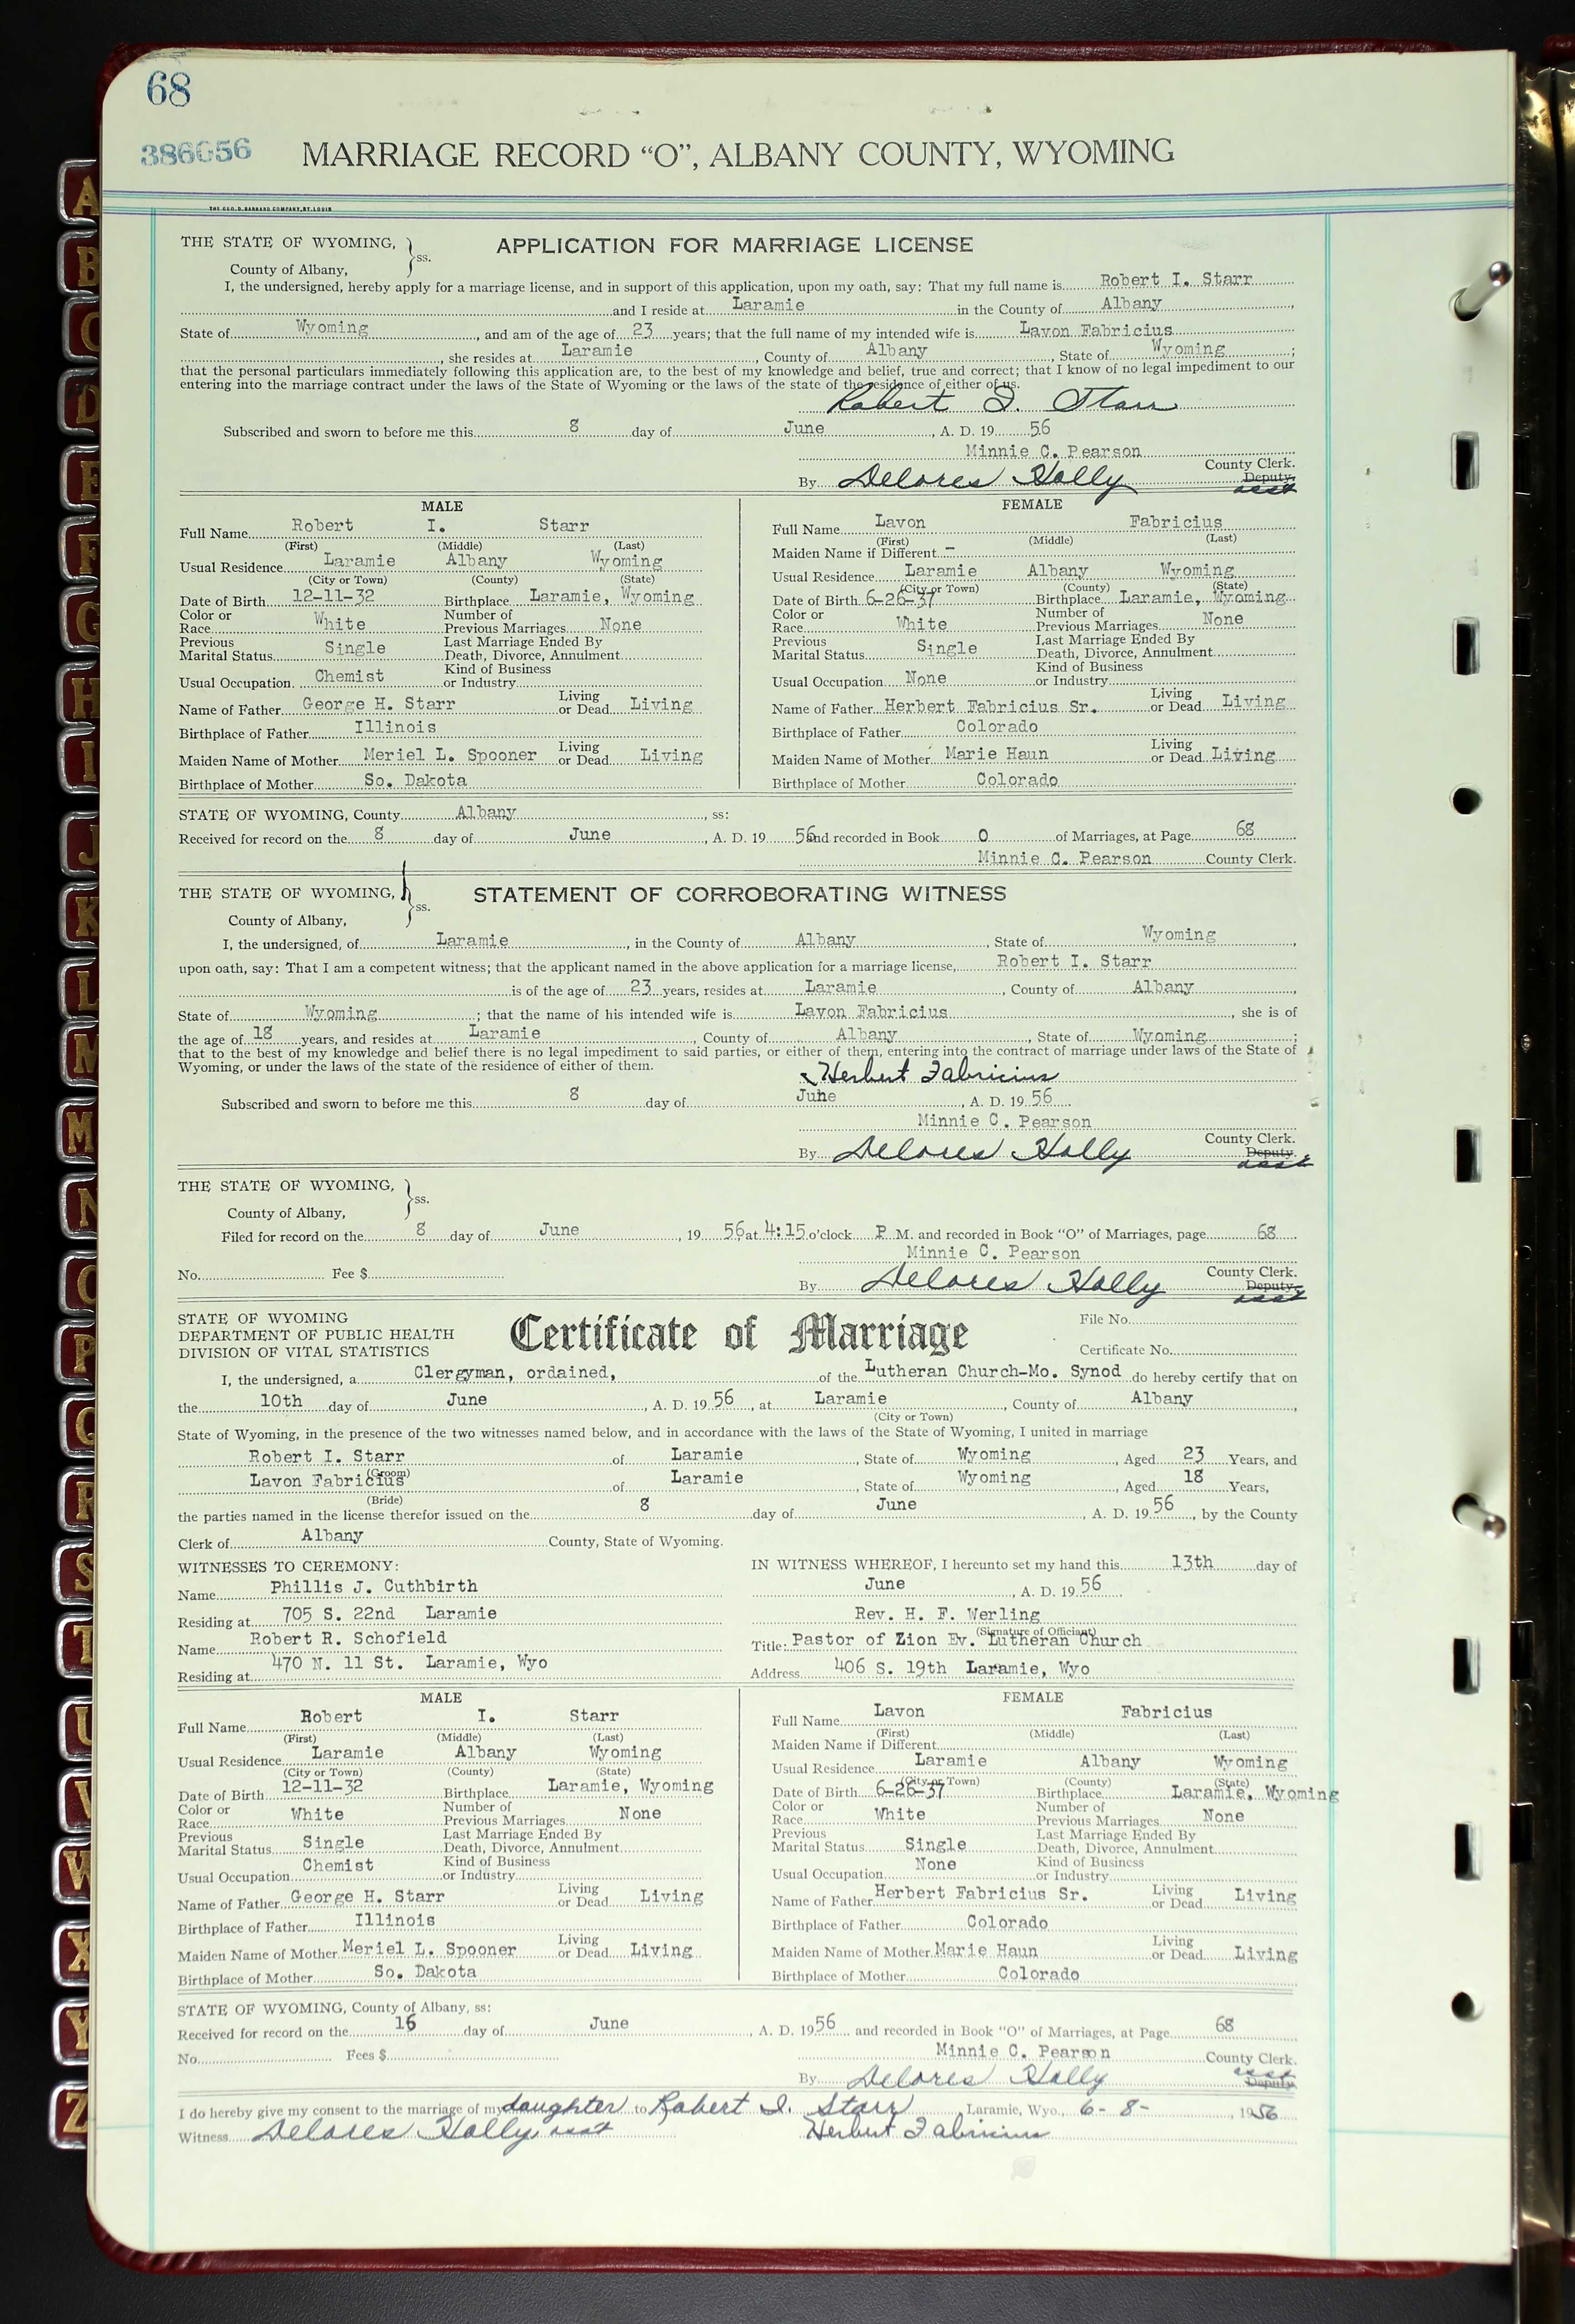 68
386056
MARRIAGE RECORD “O”, ALBANY COUNTY, WYOMING
THE GEO. D. BARNARD COMPANY, ST. LOUIS
THE STATE OF WYOMING, ss. APPLICATION FOR MARRIAGE LICENSE
County of Albany,
I, the undersigned, hereby apply for a marriage license, and in support of this application, upon my oath, say: That my full name is Robert I. Starr
and I reside at Laramie in the County of Albany,
State of Wyoming, and am of the age of 23 years; that the full name of my intended wife is Lavon Fabricius
, she resides at Laramie, County of Albany, State of Wyoming;
that the personal particulars immediately following this application are, to the best of my knowledge and belief, true and correct; that I know of no legal impediment to our
entering into the marriage contract under the laws of the State of Wyoming or the laws of the state of the residence of either of us.
Robert I. Starr
Subscribed and sworn to before me this 8 day of June, A. D. 19 56
Minnie C. Pearson
County Clerk.
By Delores Holly Deputy. asst
MALE
Full Name Robert I. Starr
(First) (Middle) (Last)
Usual Residence Laramie Albany Wyoming
(City or Town) (County) (State)
Date of Birth 12-11-32 Birthplace Laramie, Wyoming
Color or Race White Number of Previous Marriages None
Previous Marital Status Single Last Marriage Ended By Death, Divorce, Annulment
Usual Occupation Chemist Kind of Business or Industry
Name of Father George H. Starr Living or Dead Living
Birthplace of Father Illinois
Maiden Name of Mother Meriel L. Spooner Living or Dead Living
Birthplace of Mother So. Dakota
FEMALE
Full Name Lavon Fabricius
(First) (Middle) (Last)
Maiden Name if Different -
Usual Residence Laramie Albany Wyoming
(City or Town) (County) (State)
Date of Birth 6-26-37 Birthplace Laramie, Wyoming
Color or Race White Number of Previous Marriages None
Previous Marital Status Single Last Marriage Ended By Death, Divorce, Annulment
Usual Occupation None Kind of Business or Industry
Name of Father Herbert Fabricius Sr. Living or Dead Living
Birthplace of Father Colorado
Maiden Name of Mother Marie Haun Living or Dead Living
Birthplace of Mother Colorado
STATE OF WYOMING, County Albany, ss:
Received for record on the 8 day of June, A. D. 19 56 and recorded in Book O of Marriages, at Page 68
Minnie C. Pearson County Clerk.
THE STATE OF WYOMING, ss. STATEMENT OF CORROBORATING WITNESS
County of Albany,
I, the undersigned, of Laramie, in the County of Albany, State of Wyoming,
upon oath, say: That I am a competent witness; that the applicant named in the above application for a marriage license, Robert I. Starr
is of the age of 23 years, resides at Laramie, County of Albany,
State of Wyoming; that the name of his intended wife is Lavon Fabricius, she is of
the age of 18 years, and resides at Laramie, County of Albany, State of Wyoming;
that to the best of my knowledge and belief there is no legal impediment to said parties, or either of them, entering into the contract of marriage under laws of the State of
Wyoming, or under the laws of the state of the residence of either of them.
Herbert Fabricius
Subscribed and sworn to before me this 8 day of June, A. D. 19 56
Minnie C. Pearson
County Clerk.
By Delores Holly Deputy. asst
THE STATE OF WYOMING, ss.
County of Albany,
Filed for record on the 8 day of June, 19 56 at 4:15 o'clock P M. and recorded in Book “O” of Marriages, page 68
Minnie C. Pearson
No. Fee $ County Clerk.
By Delores Holly Deputy. asst
STATE OF WYOMING
DEPARTMENT OF PUBLIC HEALTH
DIVISION OF VITAL STATISTICS
Certificate of Marriage
File No.
Certificate No.
I, the undersigned, a Clergyman, ordained, of the Lutheran Church-Mo. Synod do hereby certify that on
the 10th day of June, A. D. 19 56, at Laramie, County of Albany,
(City or Town)
State of Wyoming, in the presence of the two witnesses named below, and in accordance with the laws of the State of Wyoming, I united in marriage
Robert I. Starr of Laramie, State of Wyoming, Aged 23 Years, and
(Groom)
Lavon Fabricius of Laramie, State of Wyoming, Aged 18 Years,
(Bride)
the parties named in the license therefor issued on the 8 day of June, A. D. 19 56, by the County
Clerk of Albany County, State of Wyoming.
WITNESSES TO CEREMONY:
Name Phillis J. Cuthbirth
Residing at 705 S. 22nd Laramie
Name Robert R. Schofield
Residing at 470 N. 11 St. Laramie, Wyo
IN WITNESS WHEREOF, I hereunto set my hand this 13th day of
June, A. D. 19 56
Rev. H. F. Werling
(Signature of Officiant)
Title: Pastor of Zion Ev. Lutheran Church
Address 406 S. 19th Laramie, Wyo
MALE
Full Name Robert I. Starr
(First) (Middle) (Last)
Usual Residence Laramie Albany Wyoming
(City or Town) (County) (State)
Date of Birth 12-11-32 Birthplace Laramie, Wyoming
Color or Race White Number of Previous Marriages None
Previous Marital Status Single Last Marriage Ended By Death, Divorce, Annulment
Usual Occupation Chemist Kind of Business or Industry
Name of Father George H. Starr Living or Dead Living
Birthplace of Father Illinois
Maiden Name of Mother Meriel L. Spooner Living or Dead Living
Birthplace of Mother So. Dakota
FEMALE
Full Name Lavon Fabricius
(First) (Middle) (Last)
Maiden Name if Different
Usual Residence Laramie Albany Wyoming
(City or Town) (County) (State)
Date of Birth 6-26-37 Birthplace Laramie, Wyoming
Color or Race White Number of Previous Marriages None
Previous Marital Status Single Last Marriage Ended By Death, Divorce, Annulment
Usual Occupation None Kind of Business or Industry
Name of Father Herbert Fabricius Sr. Living or Dead Living
Birthplace of Father Colorado
Maiden Name of Mother Marie Haun Living or Dead Living
Birthplace of Mother Colorado
STATE OF WYOMING, County of Albany, ss:
Received for record on the 16 day of June, A. D. 19 56 and recorded in Book “O” of Marriages, at Page 68
Minnie C. Pearson
No. Fees $ County Clerk.
By Delores Holly asst Deputy
I do hereby give my consent to the marriage of my daughter to Robert I. Starr, Laramie, Wyo., 6-8-, 1956
Witness Delores Holly, asst Herbert Fabricius
A
B
C
D
E
F
G
H
I
J
K
L
M
Mc
N
O
P
Q
R
S
T
U
V
W
X
Y
Z